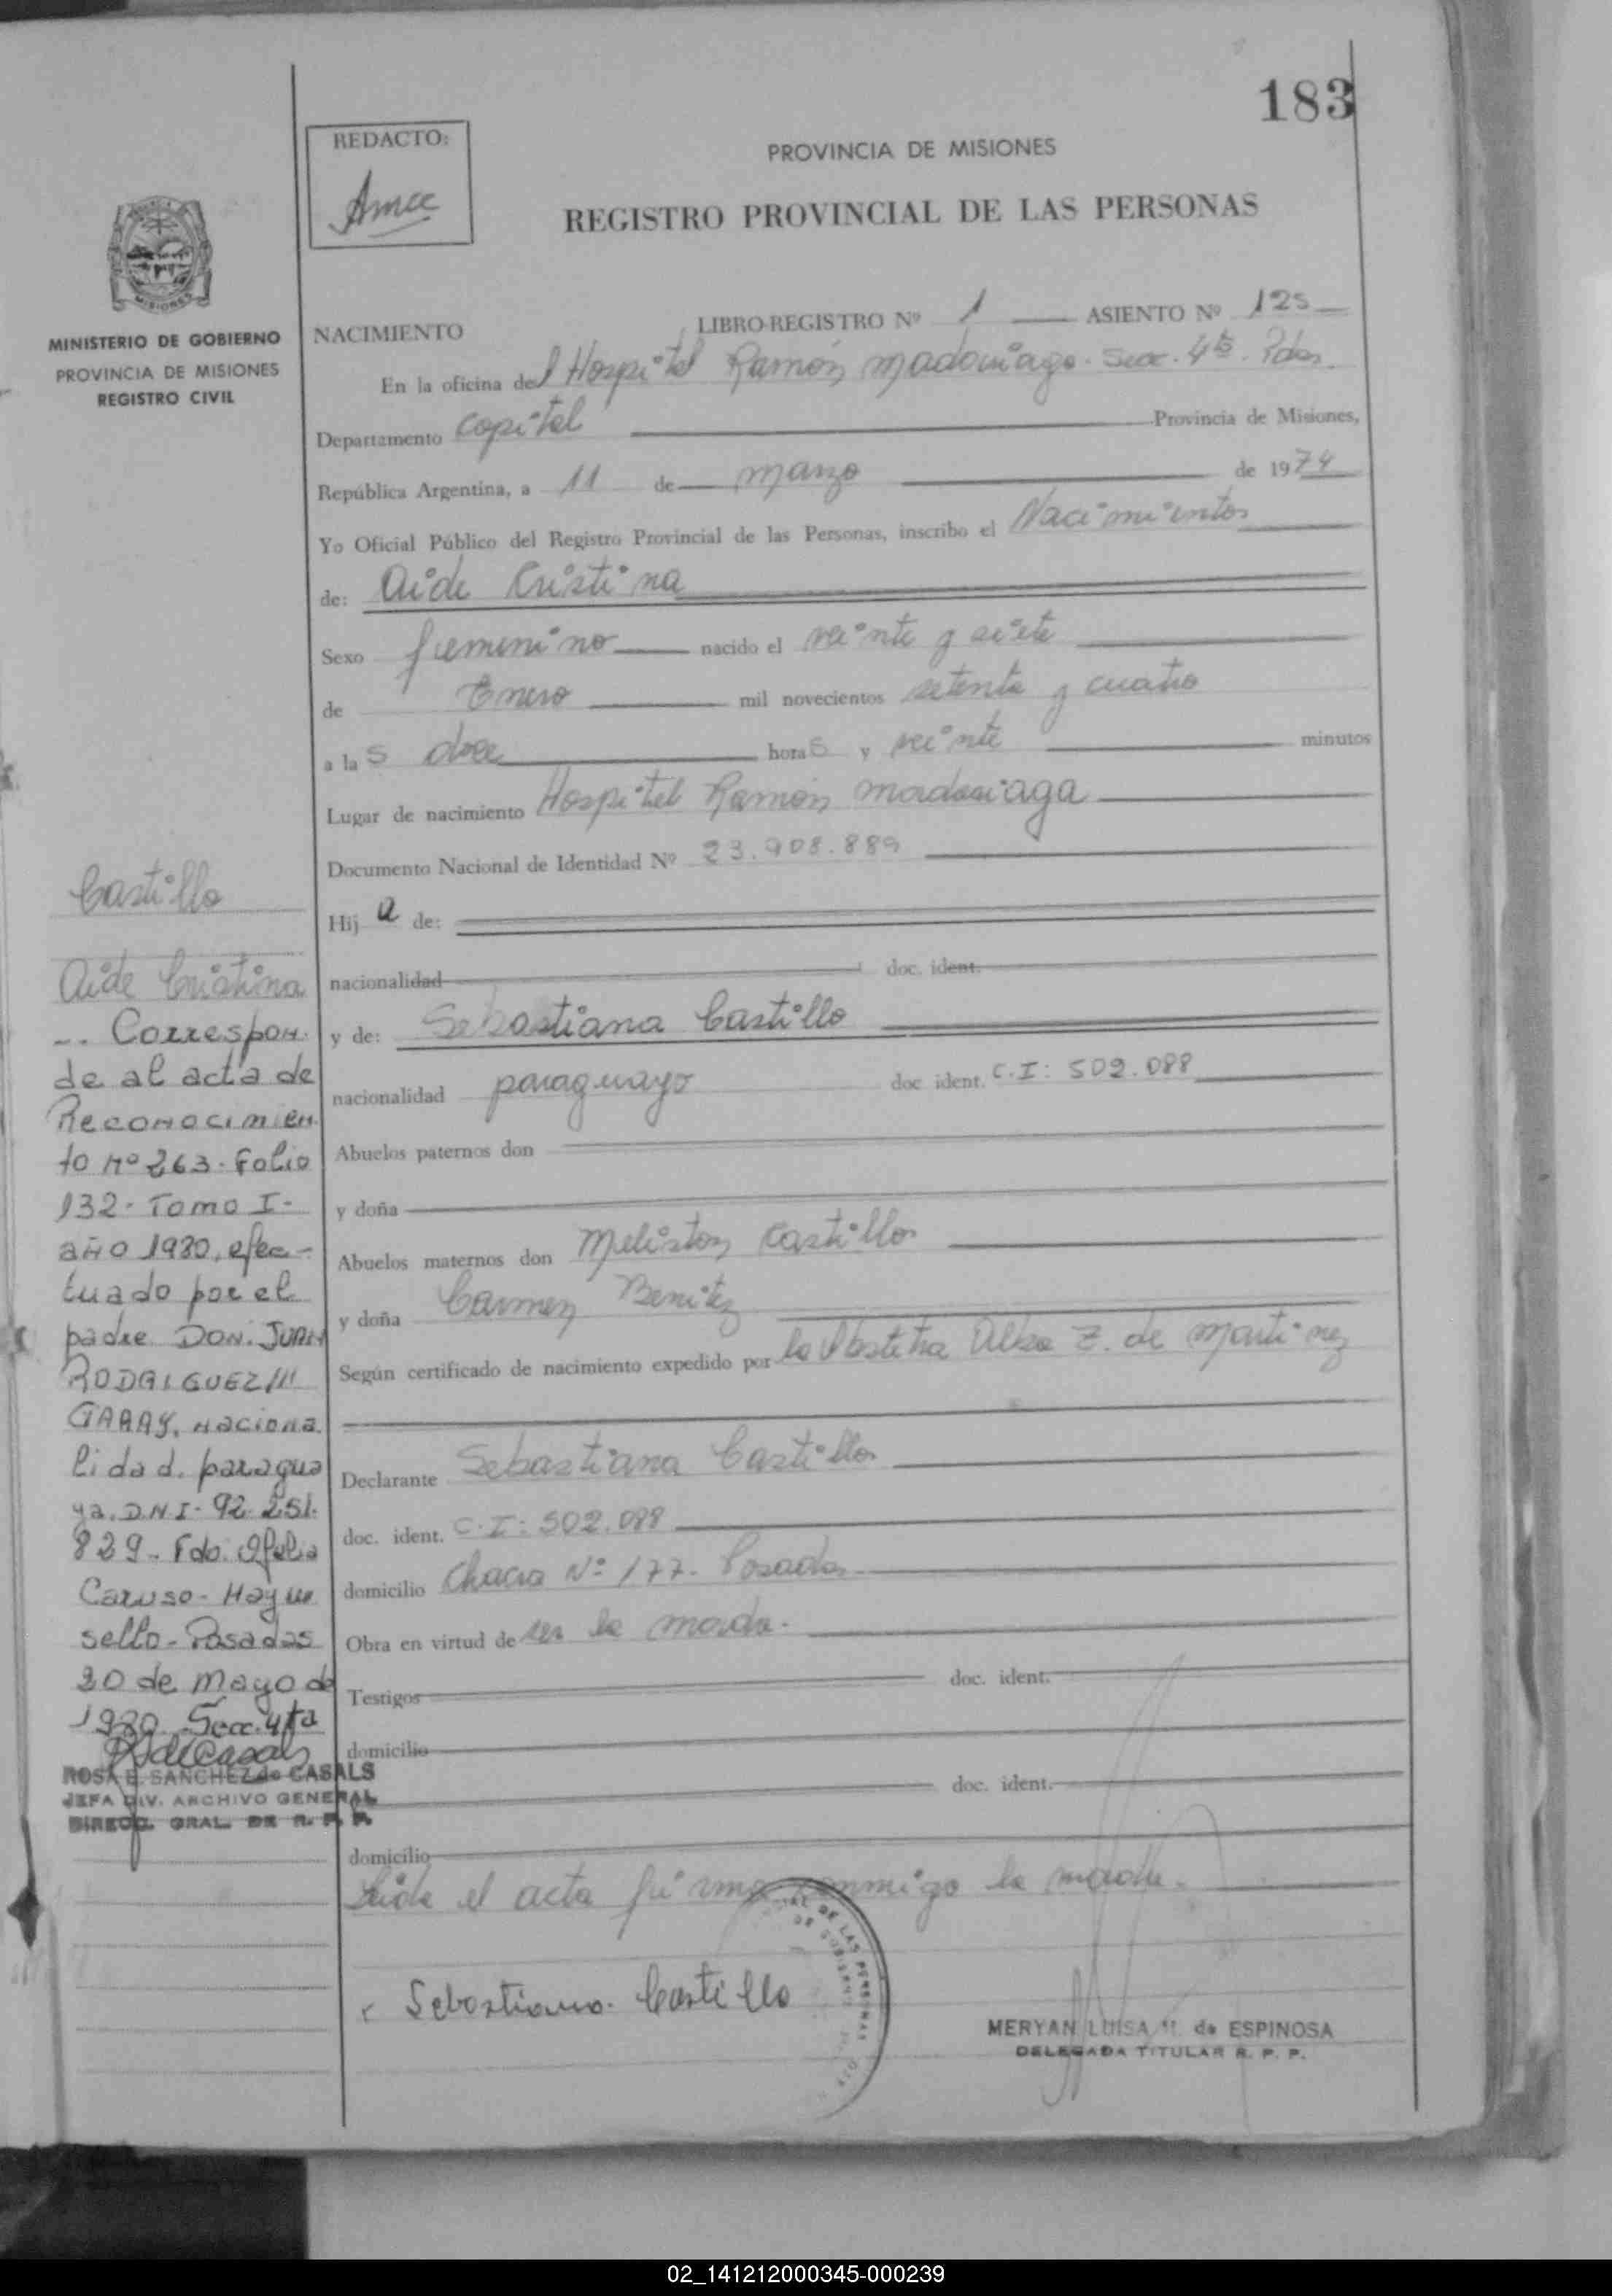 183
REDACTO:
PROVINCIA DE MISIONES
REGISTRO PROVINCIAL DE LAS PERSONAS
MISIONES
MINISTERIO DE GOBIERNO
PROVINCIA DE MISIONES
REGISTRO CIVIL
NACIMIENTO LIBRO-REGISTRO Nº 1 ASIENTO Nº 125
En la oficina del Hospital Ramón Madariaga. Secc. 4ta. Pdas.
Departamento Capital Provincia de Misiones,
República Argentina, a 11 de marzo de 1974
Yo Oficial Público del Registro Provincial de las Personas, inscribo el Nacimiento
de: Aide Cristina
Sexo femenino nacido el veinte y siete
de Enero mil novecientos setenta y cuatro
a las doce horas y veinte minutos
Lugar de nacimiento Hospital Ramón Madariaga
Documento Nacional de Identidad Nº 23.908.889
Hija de:
nacionalidad doc. ident.
y de: Sebastiana Castillo
nacionalidad paraguayo doc ident. C.I: 502.088
Abuelos paternos don
y doña
Abuelos maternos don Meliston Castillo
y doña Carmen Benitez
Según certificado de nacimiento expedido por la Obstetra Z. de Martinez
Declarante Sebastiana Castillo
doc. ident. C.I: 502.088
domicilio Chacra Nº 177. Posadas
Obra en virtud de ser la madre.
Testigos doc. ident.
domicilio
doc. ident.
domicilio
Leida el acta firma conmigo la madre.
Sebastiana Castillo
MERYAN LUISA de ESPINOSA
DELEGADA TITULAR R. P. P.
Castillo
Aide Cristina
Correspon-
de al acta de
Reconocimien
to Nº 263. Folio
132- Tomo I-
año 1980, efec-
tuado por el
padre DON. JUAN
RODRIGUEZ
GARAY, naciona
lidad. paragua
ya. DNI- 92.251.
829. Fdo. Ofelia
Caruso- Hay un
sello- Posadas
20 de Mayo de
1980. Secc. 4ta
ROSA E. SANCHEZ de CASALS
JEFA DIV. ARCHIVO GENERAL
DIRECC. GRAL. DE R. P. P.
02_141212000345-000239